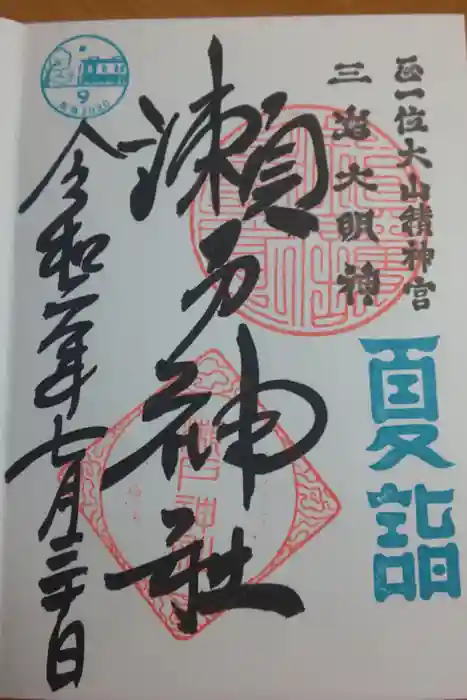 正一位大山積神宮
三島大明神
夏詣
瀬戸神社
令和二年七月三十日
9
2020